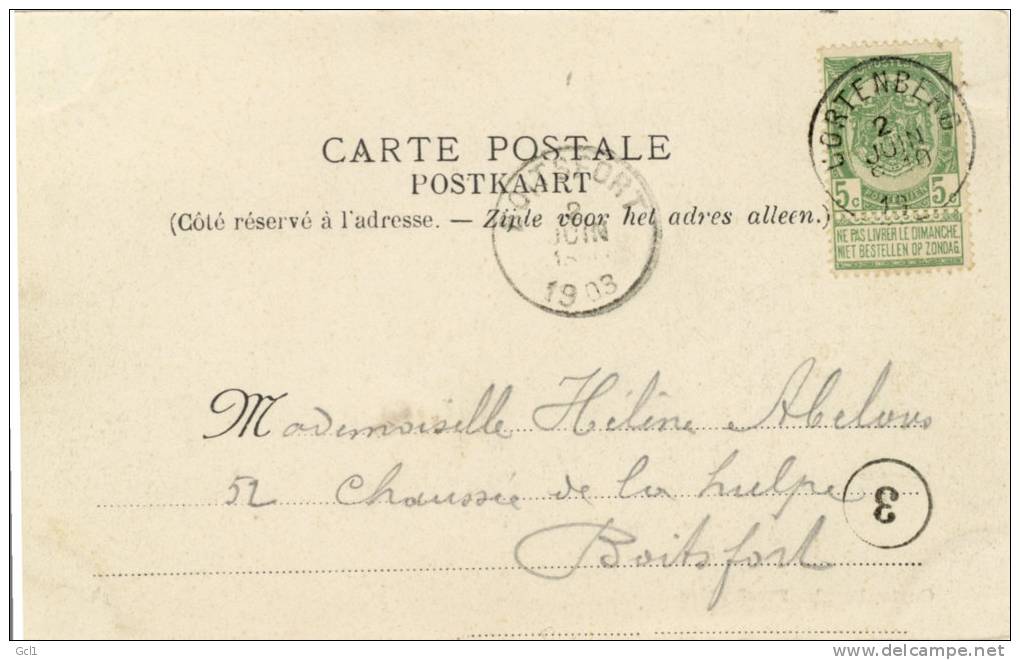 CORTENBERG
2
JUIN
5c 5c
NE PAS LIVRER LE DIMANCHE
NIET BESTELLEN OP ZONDAG
CARTE POSTALE
POSTKAART
(Côté réservé à l'adresse. — Zijde voor het adres alleen.)
BOITSFORT
2
JUIN
1903
Mademoiselle Hélène Abelous
52 Chaussée de la hulpe
3
Boitsfort
Gcl1
www.delcampe.net